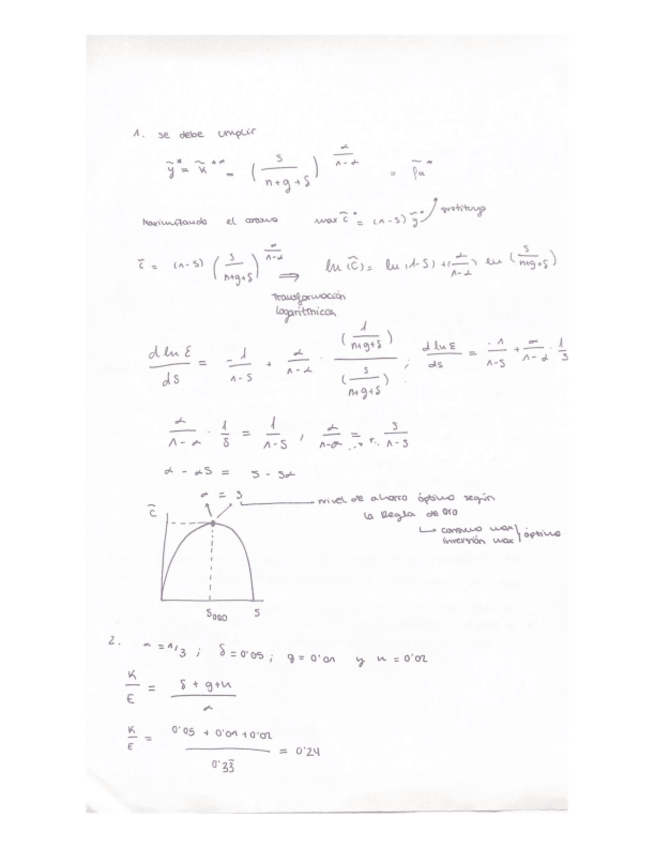 1. se debe cumplir
ỹ* = k̃*^α = (s / (n+g+δ))^(α/(1-α)) =
Maximizando el consumo max c̃* = (1-s) ỹ*
c̃ = (1-s) (s / (n+g+δ))^(α/(1-α)) ⟹ ln(c̃) = ln(1-s) + (α/(1-α)) ln (s / (n+g+δ))
Transformación
logarítmica
d ln c̃ / ds = -1/(1-s) + α/(1-α) · (1/(n+g+δ)) / (s/(n+g+δ)) ; d ln c̃ / ds = -1/(1-s) + α/(1-α) · 1/s
α/(1-α) · 1/s = 1/(1-s) , α/(1-α) = s/(1-s)
α - αs = s - sα
α = s nivel de ahorro óptimo según
la Regla de oro
consumo max
inversión max } óptimo
c̃
s_ORO s
2. α = 1/3 ; δ = 0'05 ; g = 0'01 y n = 0'02
K/E = (δ + g+n) / α
K/E = (0'05 + 0'01 + 0'02) / 0'33 = 0'24